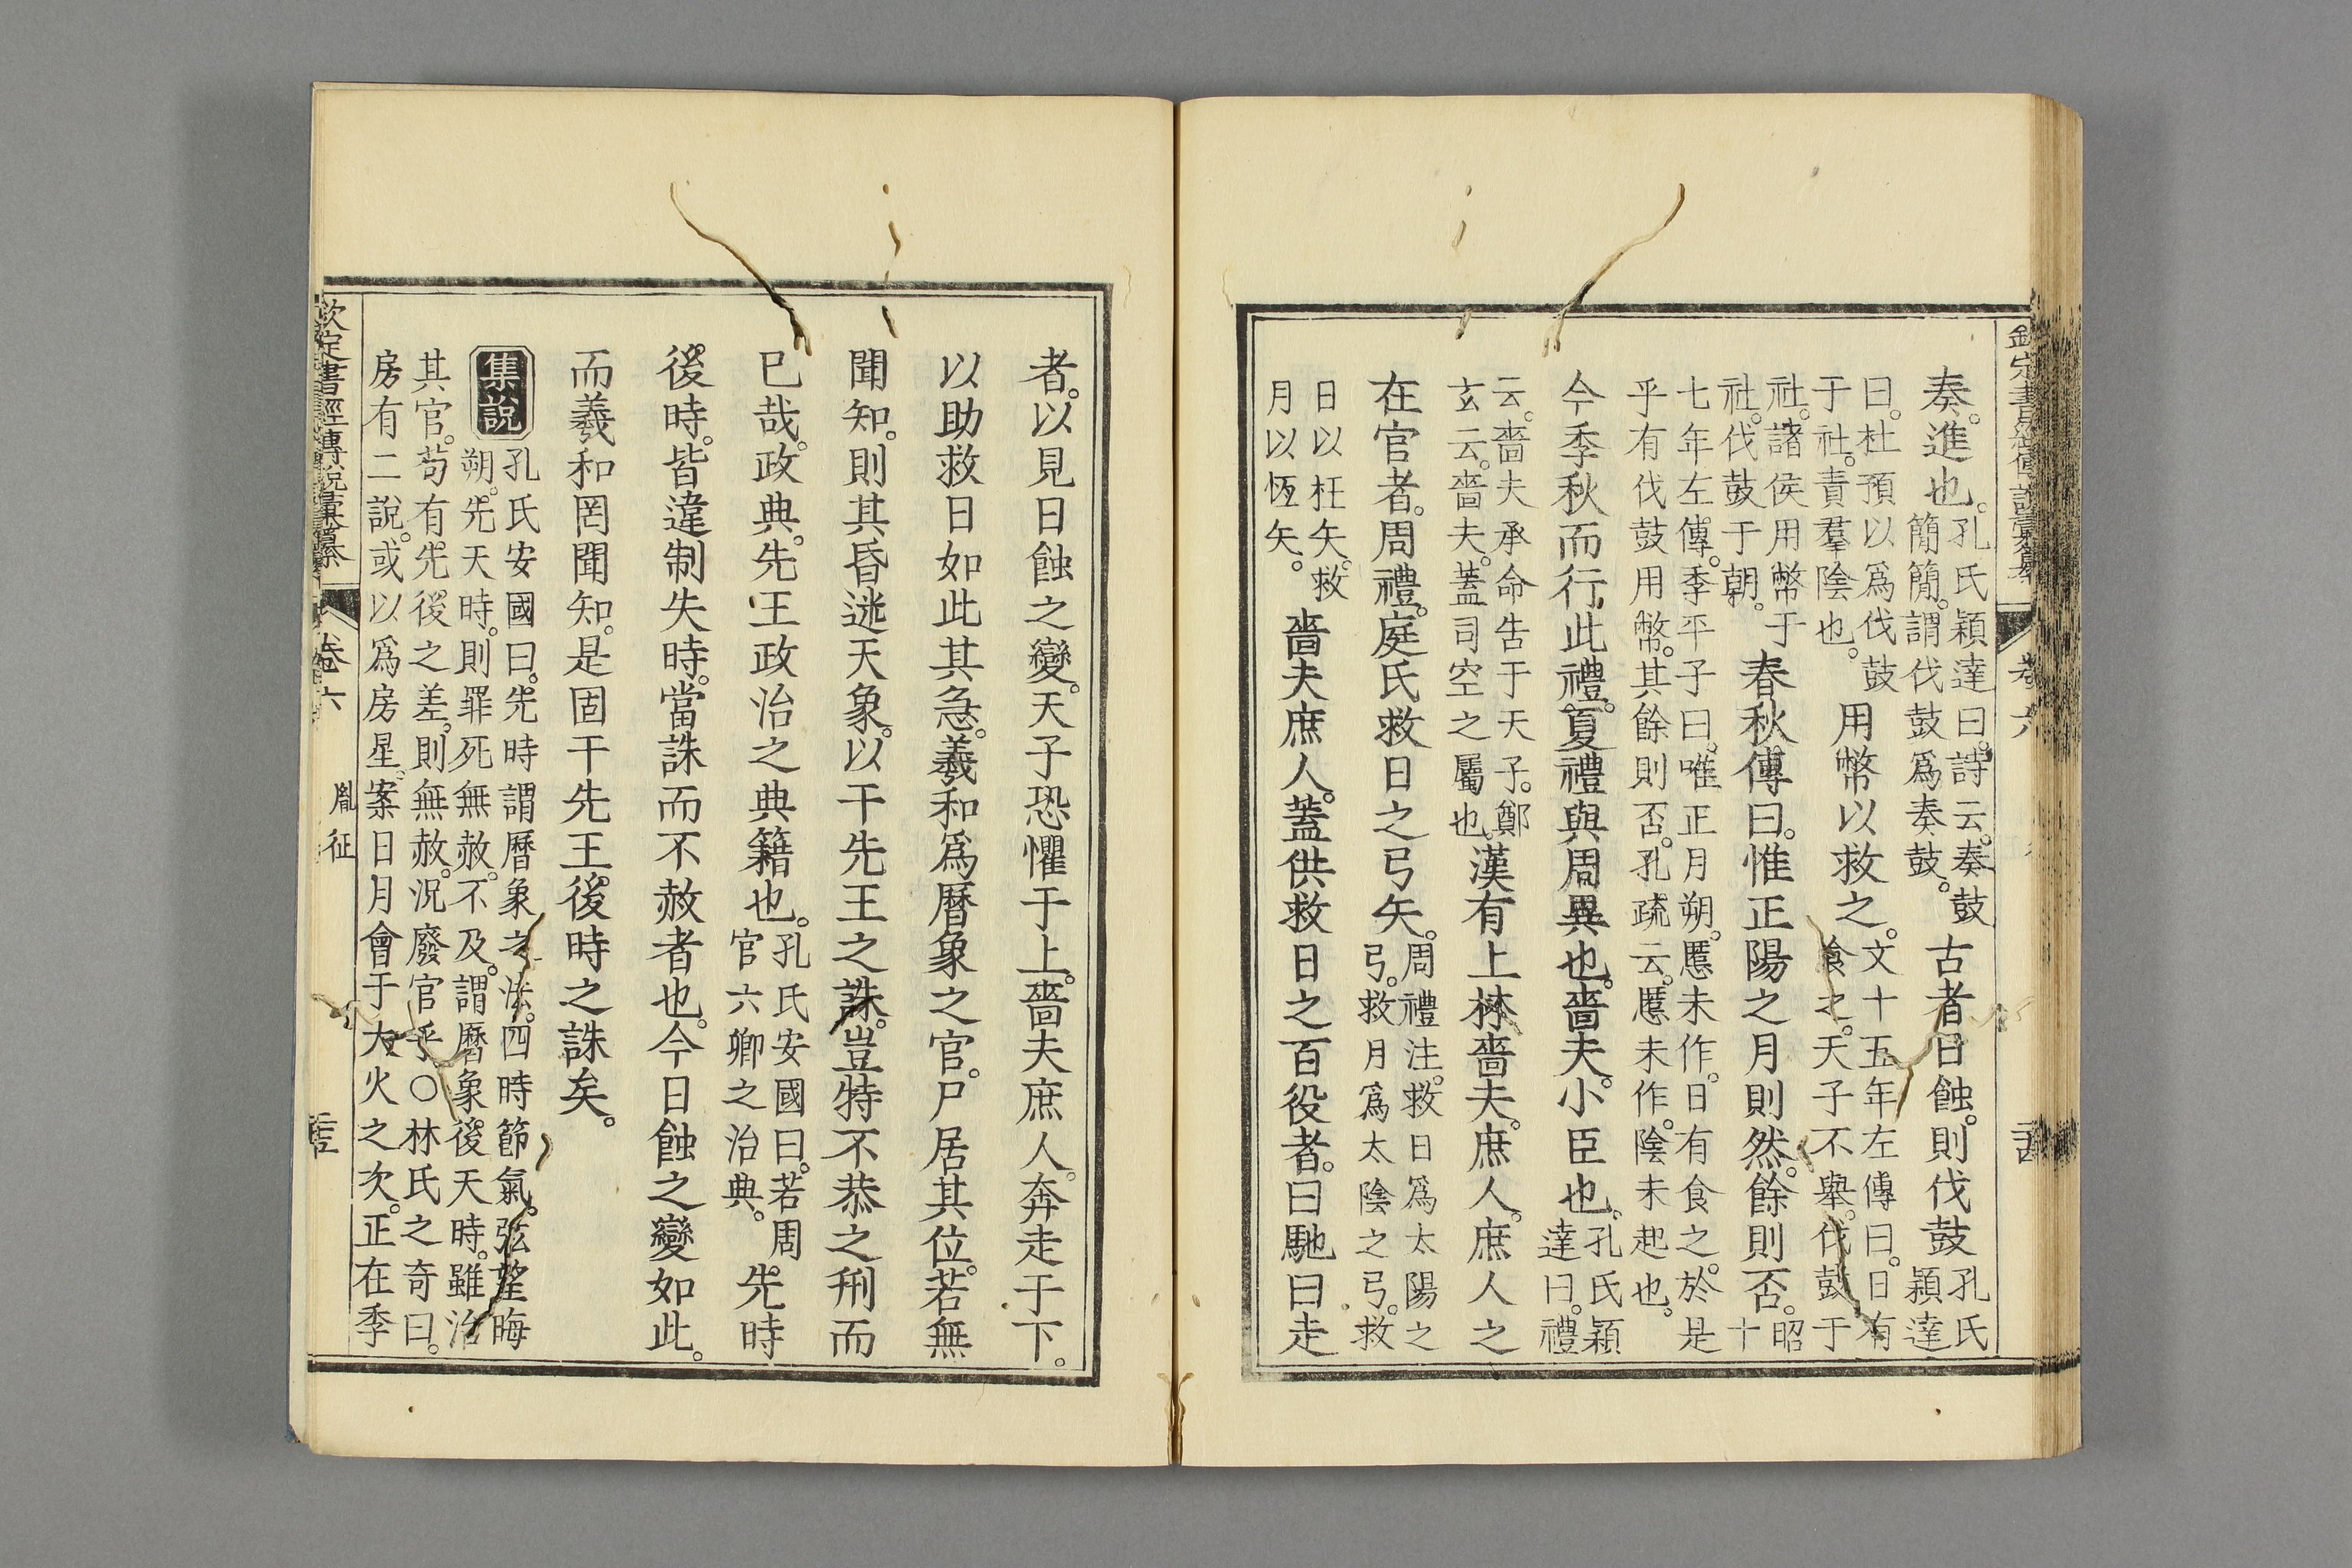 欽定書經傳說彙纂 卷六
奏。進也。孔氏穎達曰。詩云。奏鼓
簡簡。謂伐鼓爲奏鼓。
古者日蝕。則伐鼓孔氏
穎達
曰。杜預以爲伐鼓
于社。責羣陰也。
用幣以救之。文十五年左傳曰。日有
食之。天子不舉。伐鼓于
社。諸侯用幣于
社。伐鼓于朝。
春秋傳曰。惟正陽之月則然。餘則否。昭
十
七年左傳。季平子曰。唯正月朔。慝未作。日有食之。於是
乎有伐鼓用幣。其餘則否。孔疏云。慝未作。陰未起也。
今季秋而行此禮。夏禮與周異也。嗇夫。小臣也。孔氏穎
達曰。禮
云。嗇夫承命告于天子。鄭
玄云。嗇夫。蓋司空之屬也。
漢有上林嗇夫。庶人。庶人之
在官者。周禮。庭氏救日之弓矢。周禮注。救日爲太陽之
弓。救月爲太陰之弓。救
日以枉矢。救
月以恆矢。
嗇夫庶人。蓋供救日之百役者。曰馳曰走
者。以見日蝕之變。天子恐懼于上。嗇夫庶人。奔走于下。
以助救日如此其急。羲和爲曆象之官。尸居其位。若無
聞知。則其昏迷天象。以干先王之誅。豈特不恭之刑而
已哉。政典。先王政治之典籍也。孔氏安國曰。若周
官六卿之治典。
先時
後時。皆違制失時。當誅而不赦者也。今日蝕之變如此。
而羲和罔聞知。是固干先王後時之誅矣。
集說
孔氏安國曰。先時謂曆象之法。四時節氣。弦望晦
朔。先天時。則罪死無赦。不及。謂曆象後天時。雖治
其官。苟有先後之差。則無赦。況廢官乎。○林氏之奇曰。
房有二說。或以爲房星。案日月會于大火之次。正在季
欽定書經傳說彙纂 卷六 胤征